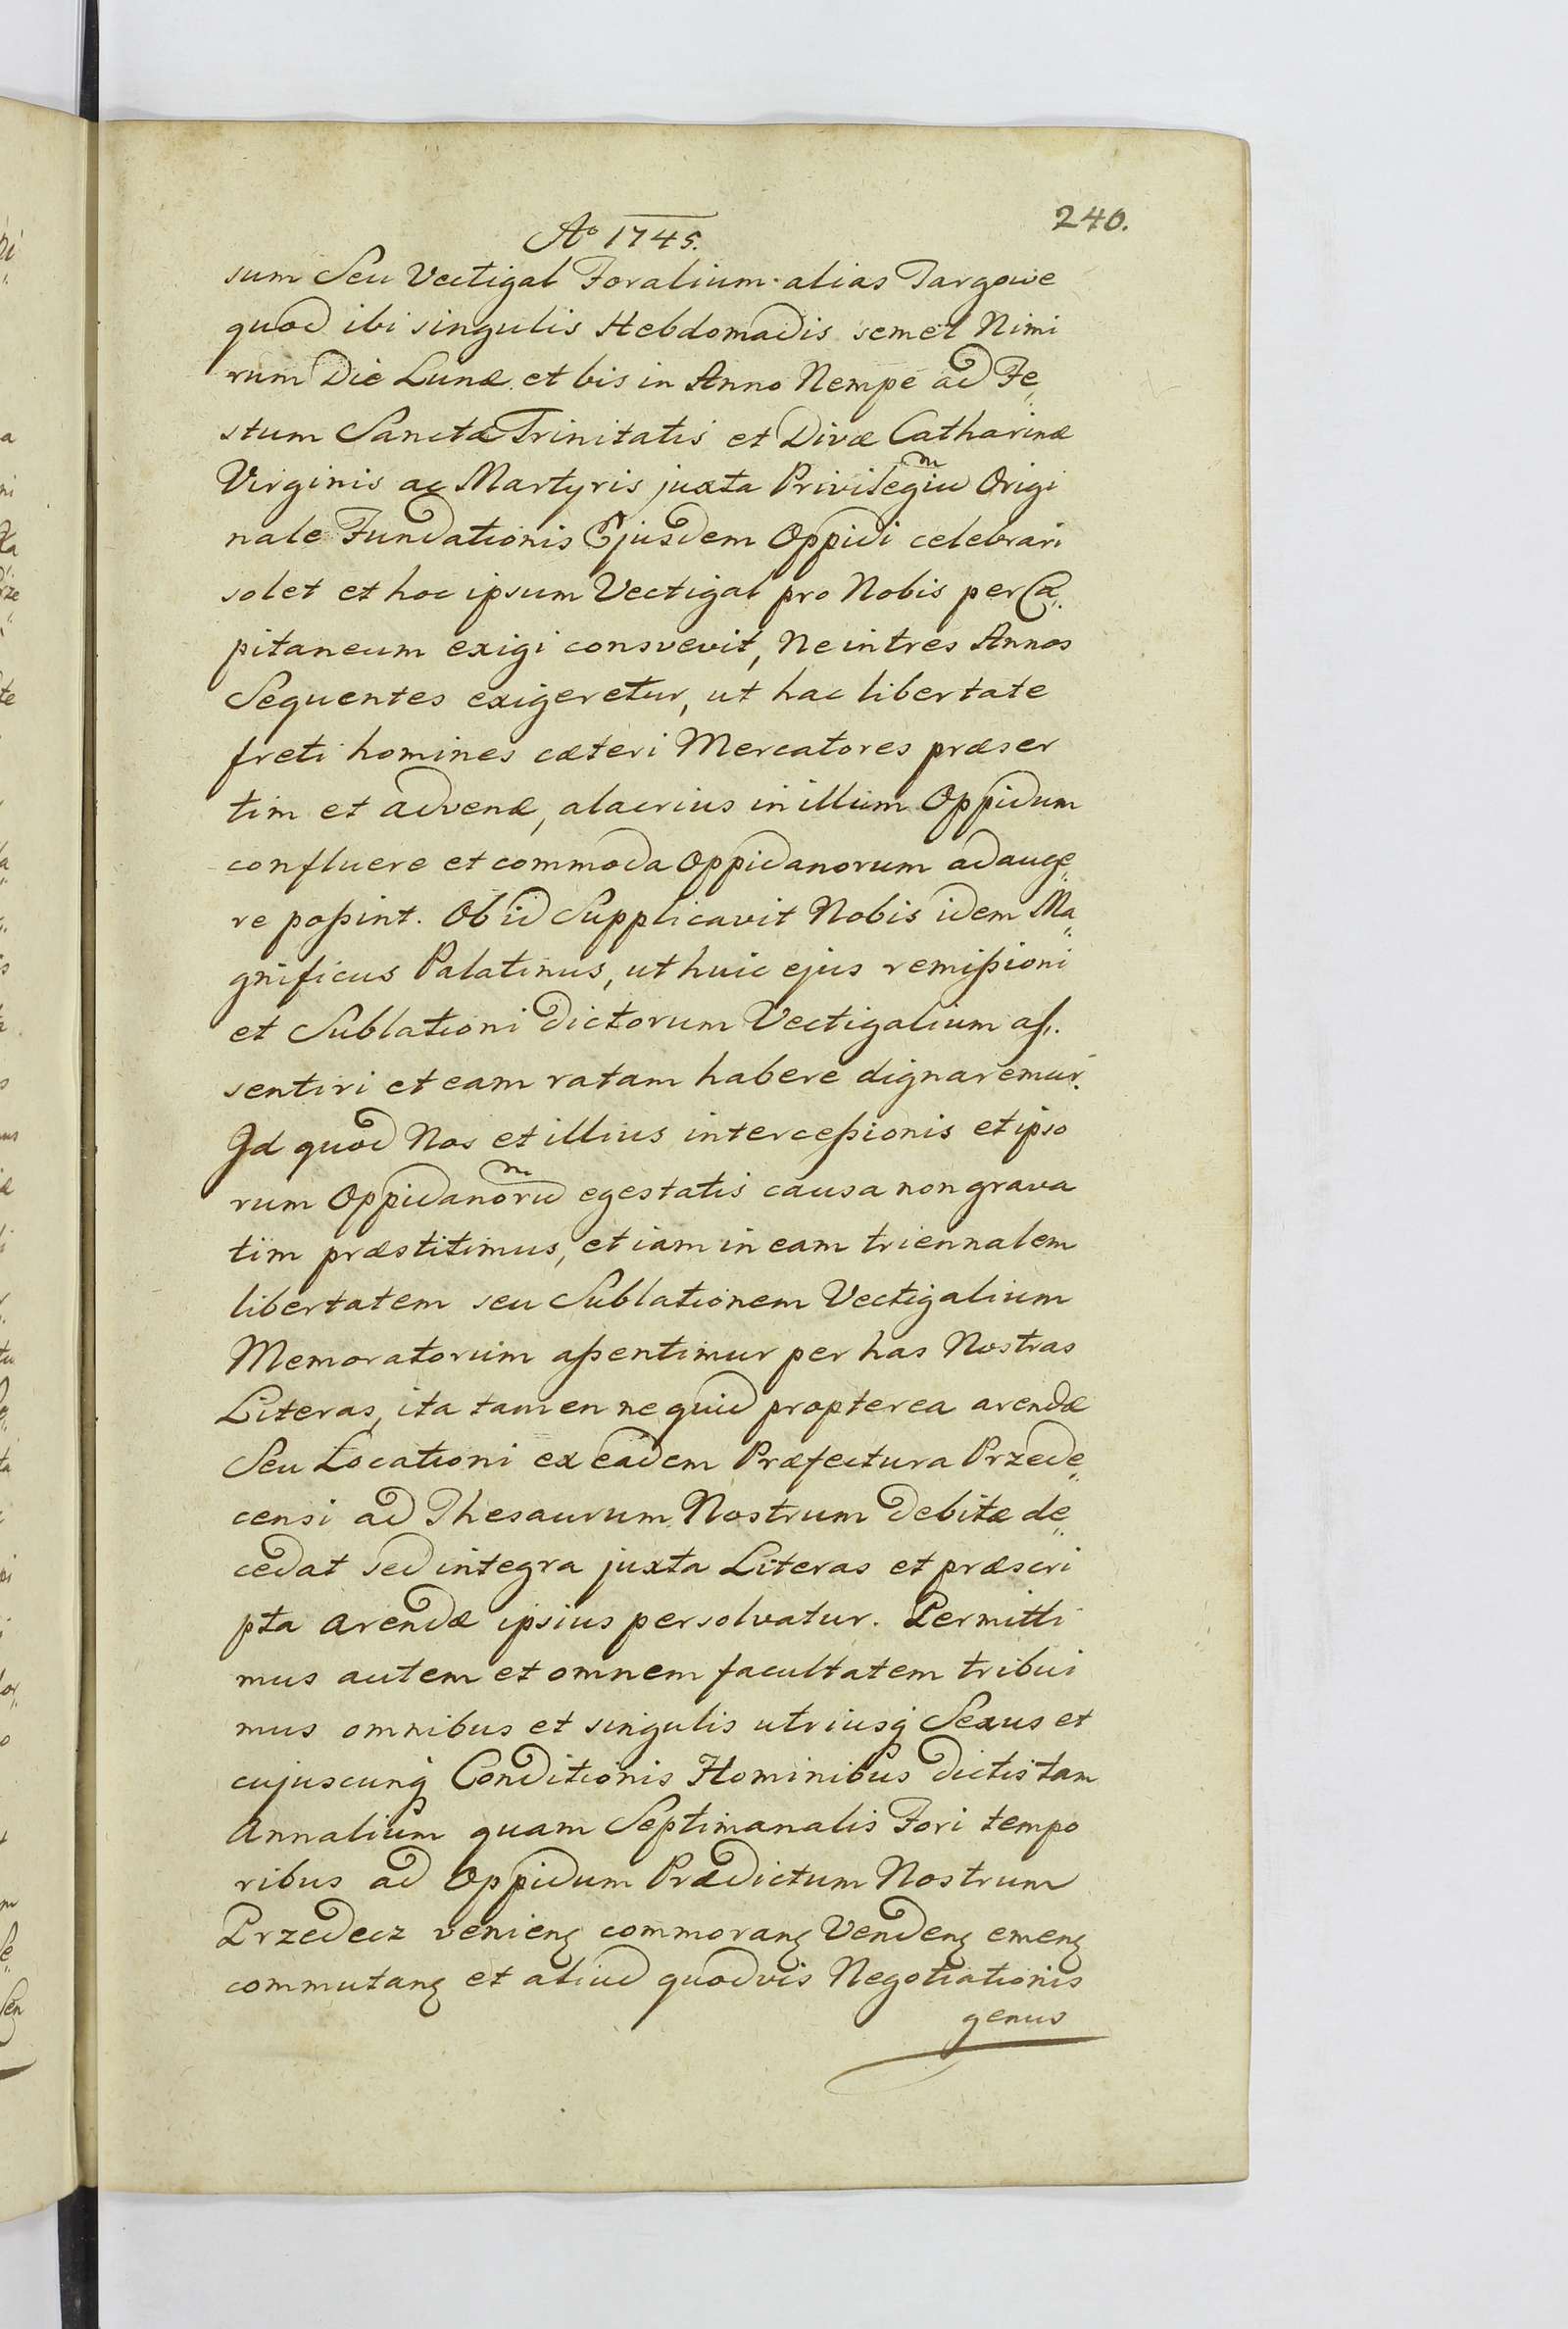 240.
Aº 1745.
sum Seu Vectigal Foralium alias Targowe
quod ibi singulis Hebdomadis semel Nimi
rum Die Lunæ et bis in Anno Nempe ad Fe„
stum Sanctæ Trinitatis et Divæ Catharinæ
Virginis ac Martyris juxta Privilegiuᵐ Origi
nale Fundationis Ejusdem Oppidi celebrari
solet et hoc ipsum Vectigal pro Nobis per Ca„
pitaneum exigi consvevit, Ne in tres Annos
Sequentes exigeretur, ut hac libertate
freti homines cæteri Mercatores præser
tim et advenæ, alacrius in illum Oppidum
confluere et commoda Oppidanorum adauge„
re poßint. Ob id Supplicavit Nobis idem Ma„
gnificus Palatinus, ut huic ejus remißioni
et Sublationi dictorum Vectigalium aſ„
sentiri et eam ratam habere dignaremur.
Id quod Nos et illius interceßionis et ipso
rum Oppidanoruᵐ egestatis causa non grava
tim præstitimus, et iam in eam triennalem
libertatem seu Sublationem Vectigalium
Memoratorum aßentimur per has Nostras
Literas, ita tamen ne quid propterea arendæ
Seu Locationi ex eadem Præfectura Przede„
censi ad Thesaurum Nostrum debitæ de„
cedat sed integra juxta Literas et præscri
pta arendæ ipsius persolvatur. Permitti
mus autem et omnem facultatem tribui
mus omnibus et singulis utriusq̨ Sexus et
cujuscunq̨ Conditionis Hominibus dictis tam
Annalium quam Septimanalis Fori tempo
ribus ad Oppidum Prædictum Nostrum
Przedecz venienꝫ commoranꝫ Vendenꝫ emenꝫ
commutanꝫ et aliud quodvis Negotiationis
genus